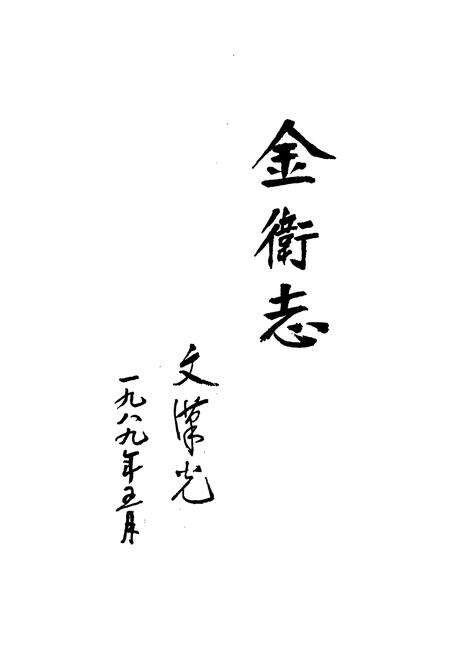 金衛志
文漢光
一九八九年五月